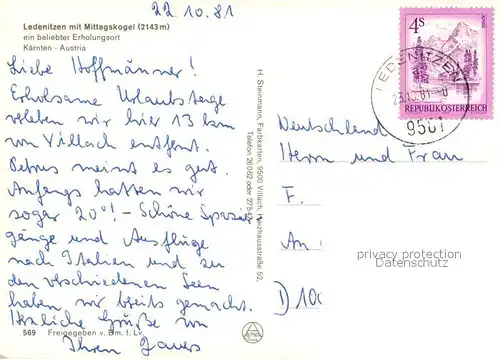 22.10.81
Ledenitzen mit Mittagskogel (2143 m)
ein beliebter Erholungsort
Kärnten - Austria
Liebe Hoffmänner!
Erholsame Urlaubstage
erleben wir hier 13 km
von Villach entfernt.
Petrus meint es gut.
Anfangs hatten wir
sogar 20°! - Schöne Spazier
gänge und Ausflüge
nach Italien und zu
den verschiedenen Seen
haben wir bereits gemacht.
Herzliche Grüße von
Ihren
569 Freigegeben v. Bm. f. Lv.
H. Steinmann, Farbkarten, 9500 Villach, Holzhausstraße 52,
Telefon 26062 oder
4 S
REPUBLIK ÖSTERREICH
LEDENITZEN
9581
Deutschland
Herrn und Frau
F.
An
D 100
privacy protection
Datenschutz